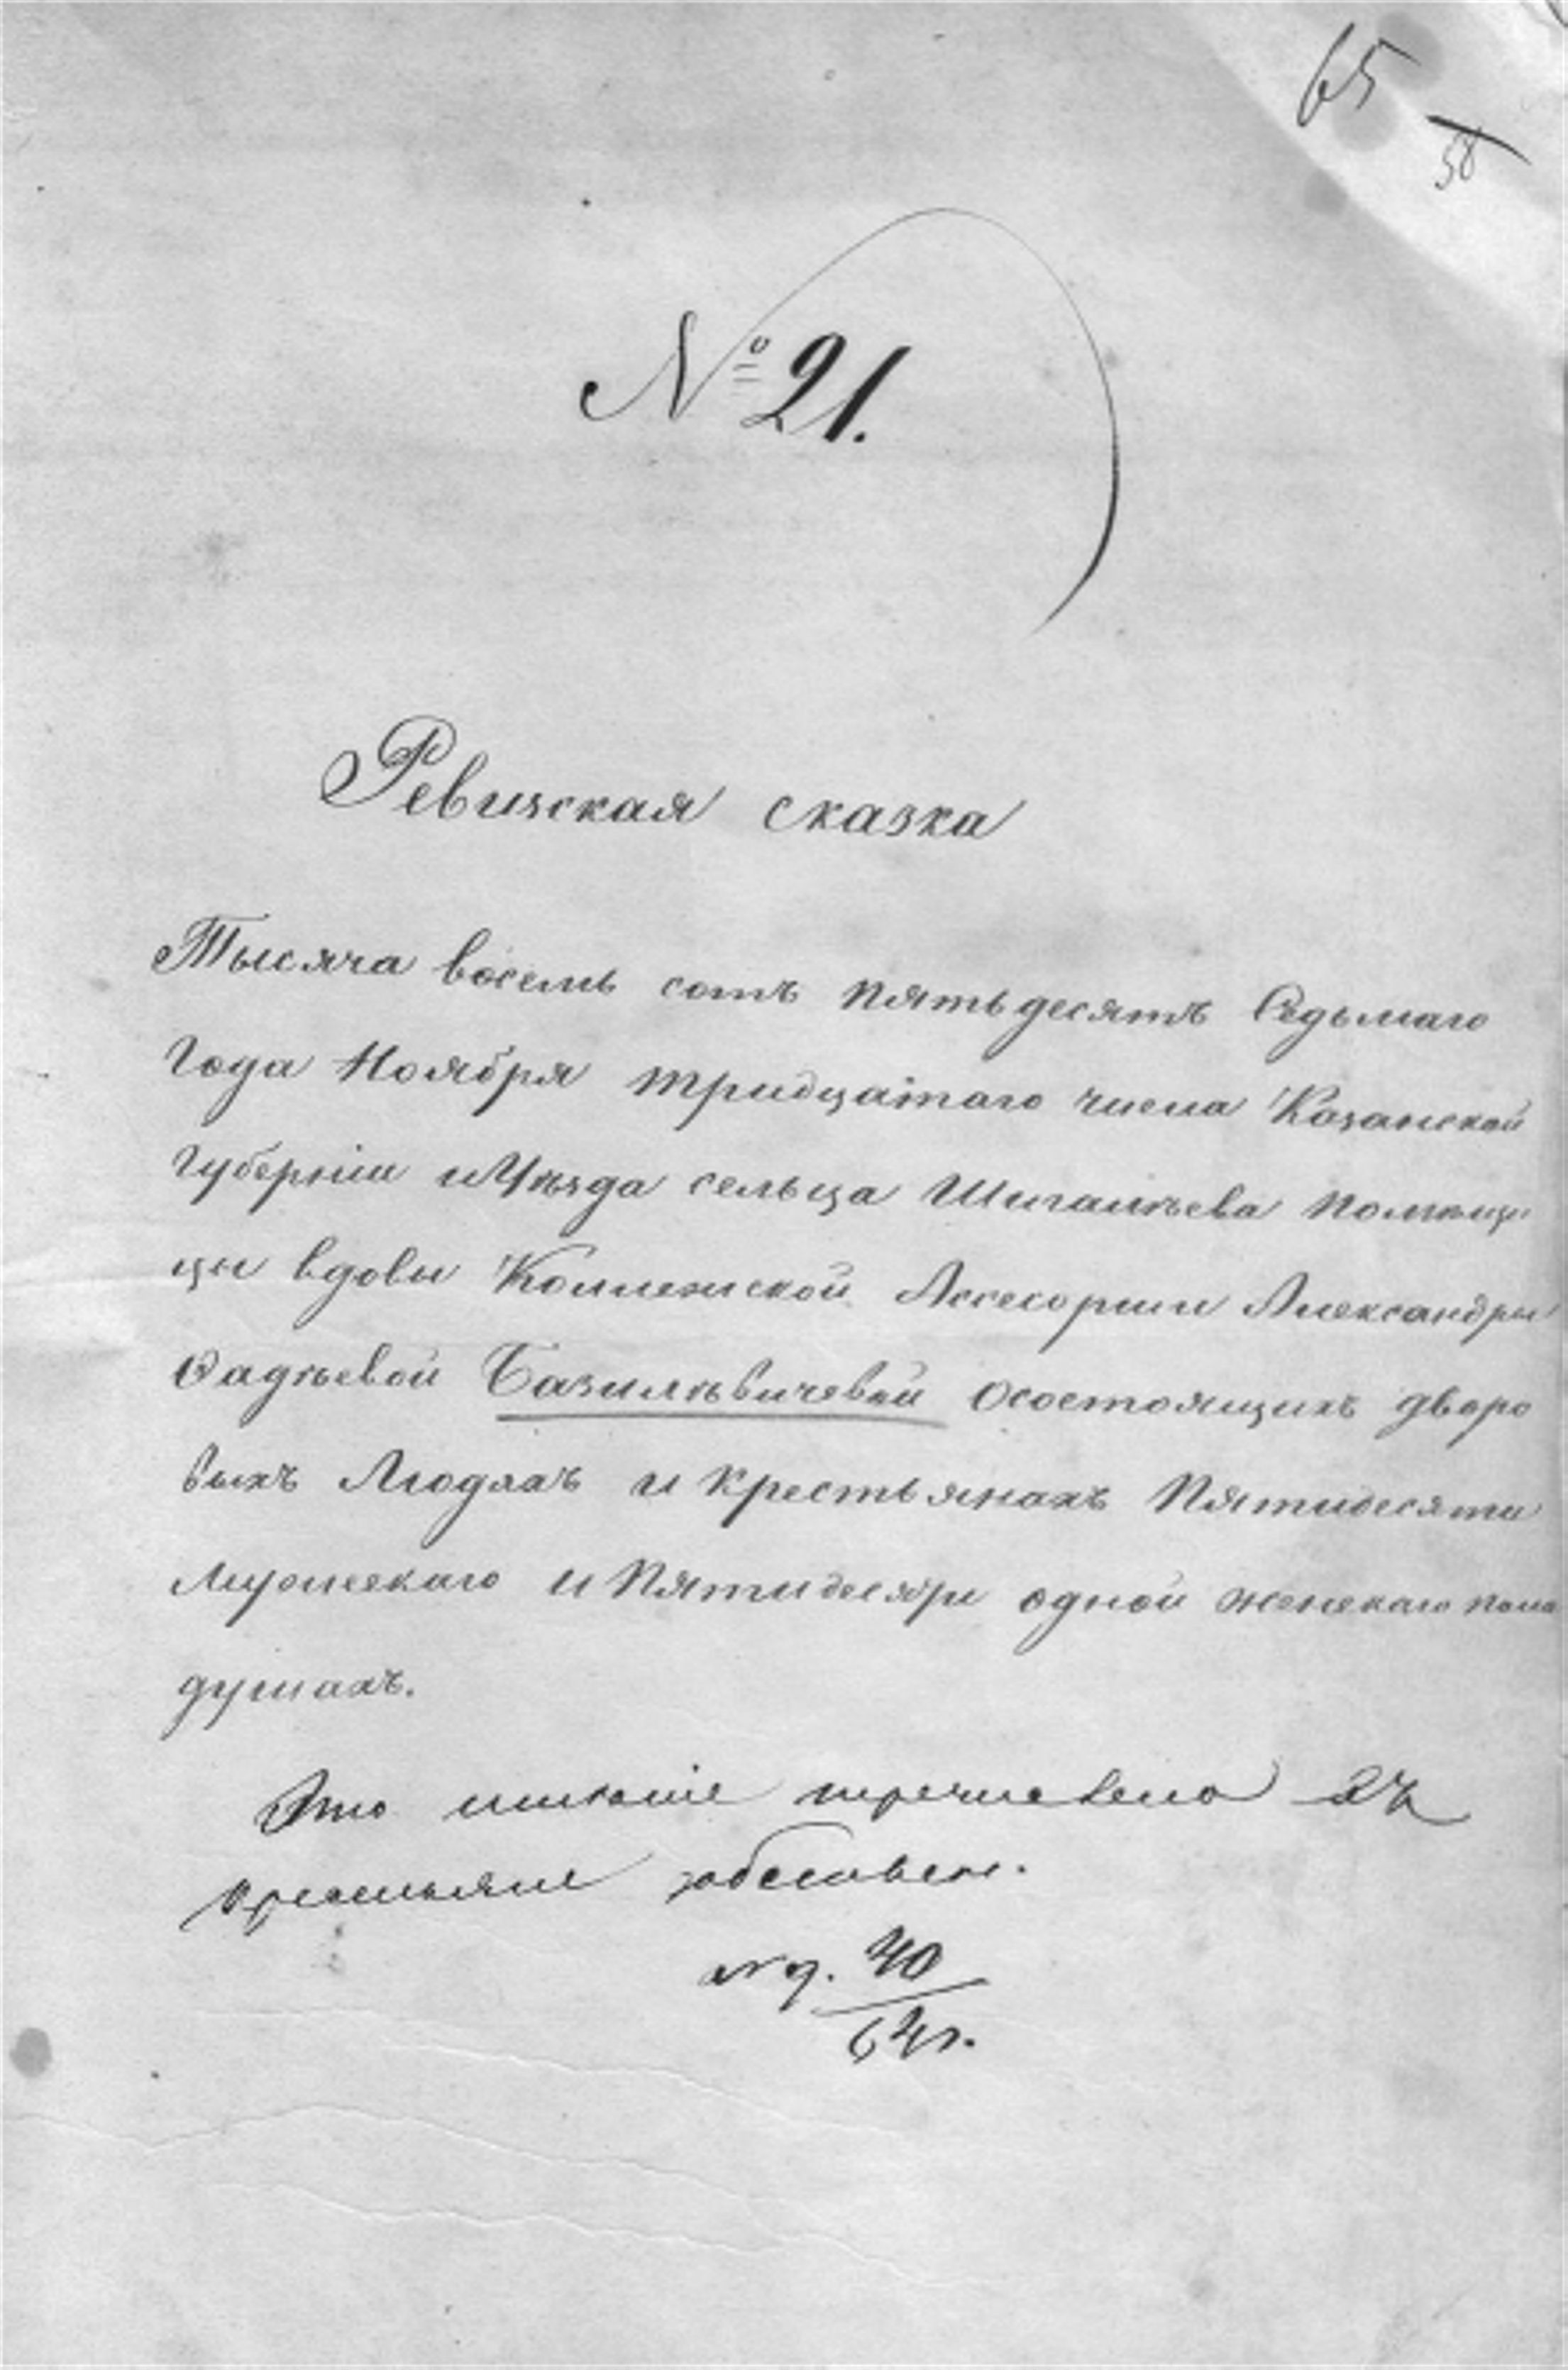 65
58
№ 21.
Ревизская сказка
Тысяча восемь сотъ пятьдесятъ Седьмаго
Года Ноября тридцатаго числа Казанской
Губерніи и Уѣзда сельца Шигалѣева помѣщи
цы вдовы Коллежской Ассесорши Александры
Фадѣевой Базилѣвичевой осостоящихъ дворо
выхъ Людяхъ и крестьянахъ Пятидесяти
Мужескаго и Пятидесяти одной женскаго пола
душахъ.
Это имѣніе перечислено въ
крестьяне собственн.
40
64 г.